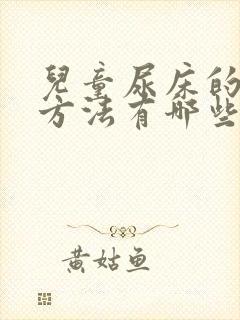 兒童尿床的
方法有哪些
黄姑鱼